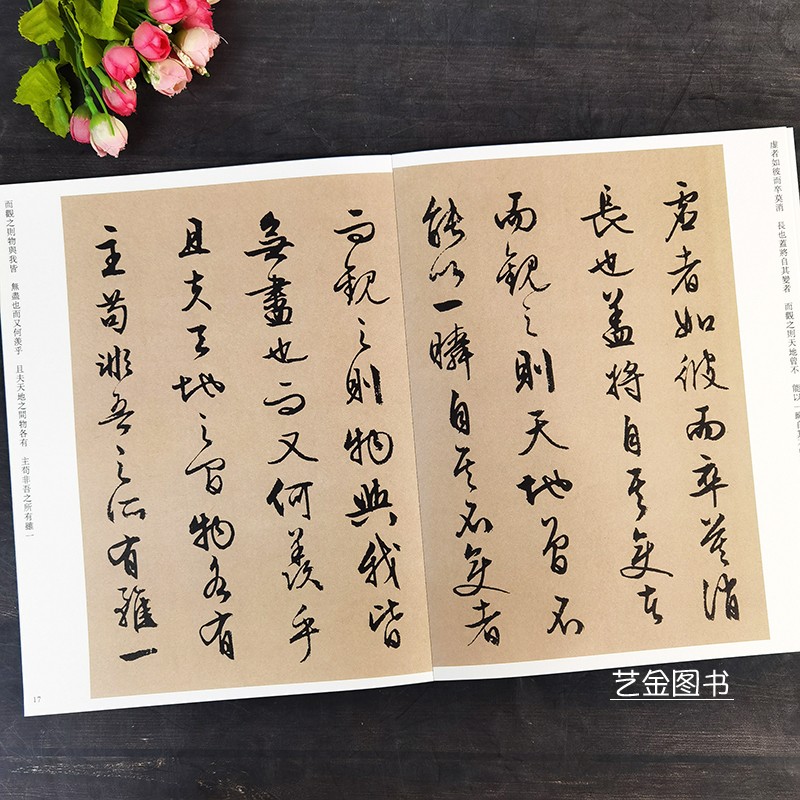 虛者如彼而卒莫消　長也蓋將自其變者　而觀之則天地曾不　能以一瞬自其
虛者如彼而卒莫消
長也蓋將自其變者
而觀之則天地曾不
能以一瞬自其不變者
而觀之則物與我皆
無盡也而又何羨乎
且夫天地之間物各有
主苟非吾之所有雖一
而觀之則物與我皆　無盡也而又何羨乎　且夫天地之間物各有　主苟非吾之所有雖一
17
艺金图书